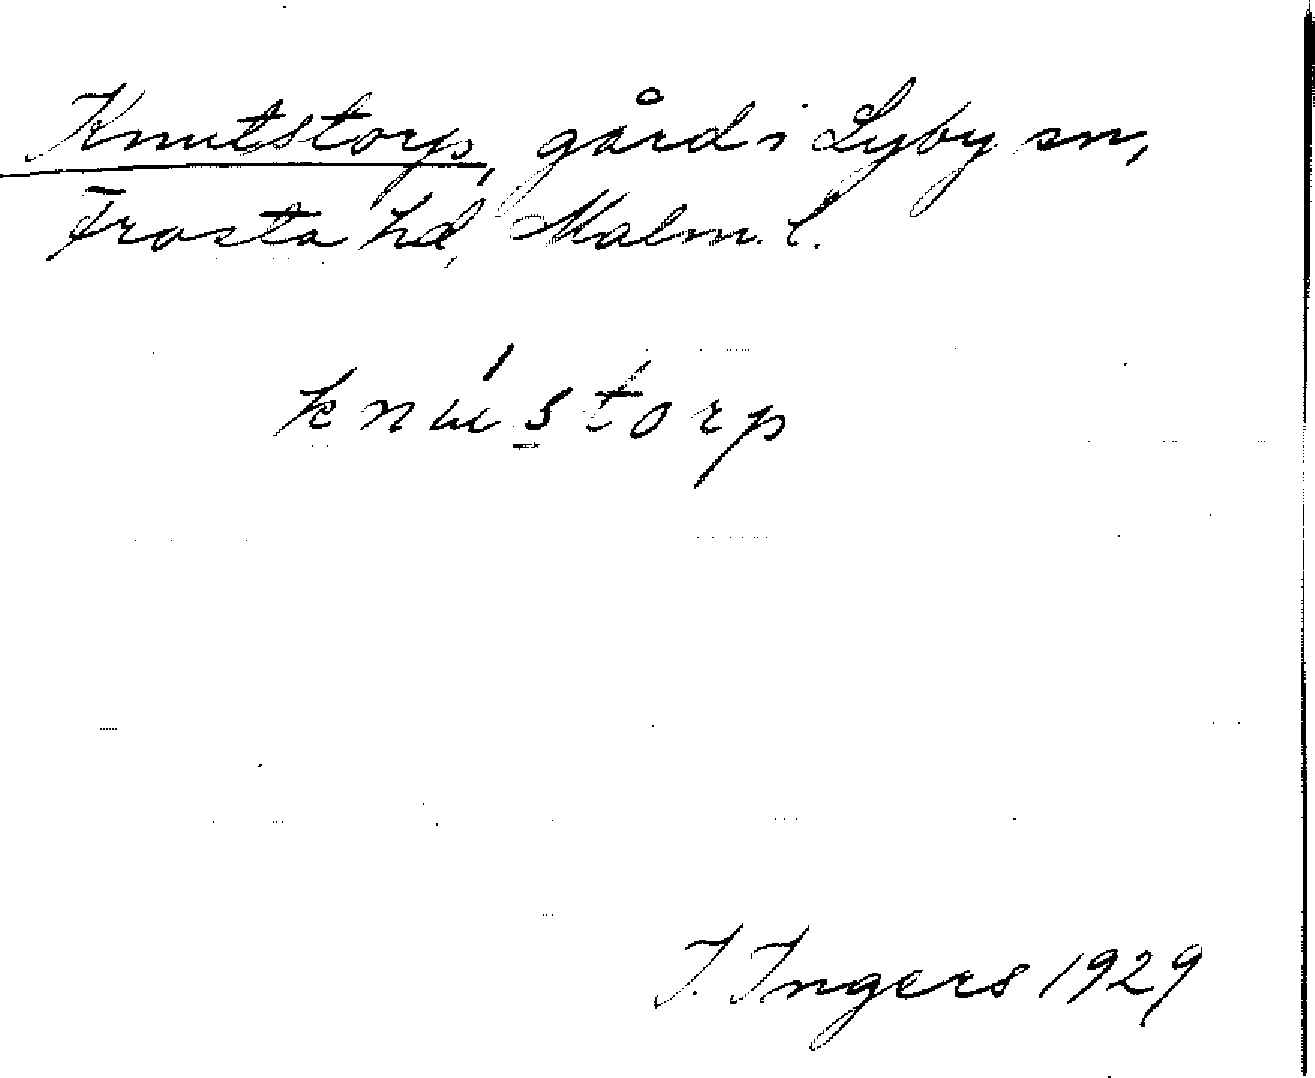 Knutstorp, gård i Lyby sn,
Frosta hd, Malm. l.
knústorp
I. Ingers 1929